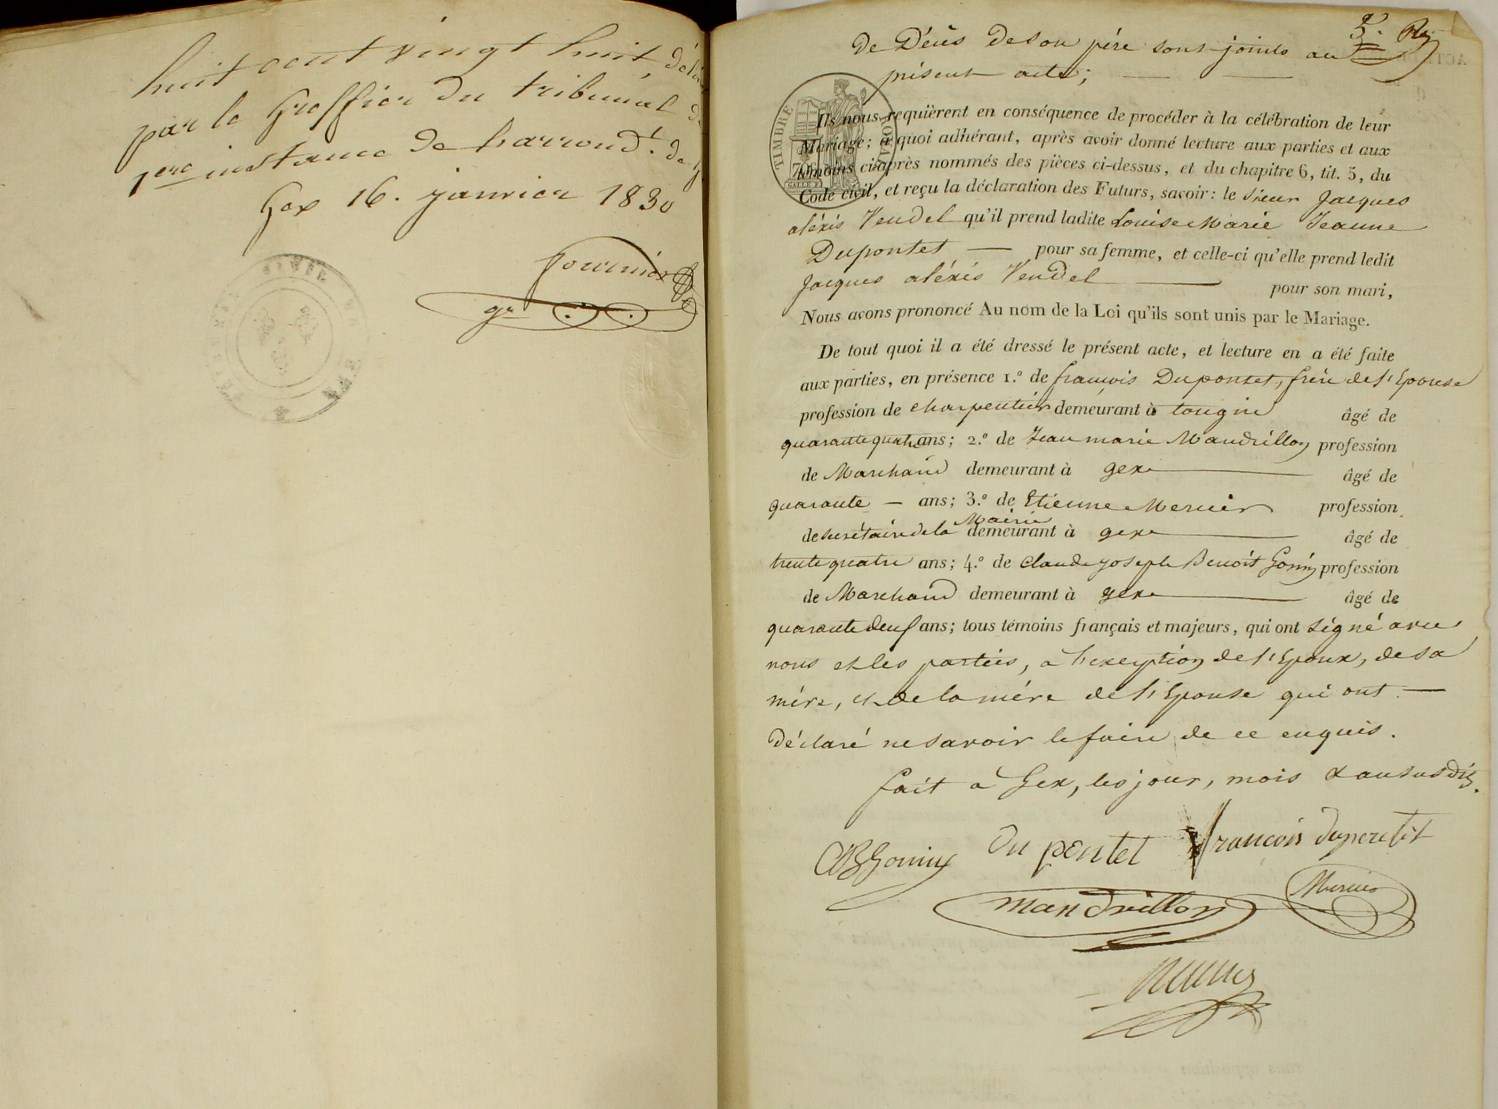 huit cent vingt huit, déliv
par le Greffier du tribunal de
1ere instance de l'arrond.t de
Gex 16. janvier 1830
fournier
gr
de Décès de son père sont joints au
présent acte;
TIMBRE ROYAL
Ils nous requièrent en conséquence de procéder à la célébration de leur
Mariage; à quoi adhérant, après avoir donné lecture aux parties et aux
témoins ci-après nommés des pièces ci-dessus, et du chapitre 6, tit. 5, du
Code civil, et reçu la déclaration des Futurs, savoir: le sieur Jacques
aléxis Vendel qu'il prend ladite Louise Marie Jeanne
Dupontet — pour sa femme, et celle-ci qu'elle prend ledit
Jacques aléxis Vendel — pour son mari,
Nous avons prononcé Au nom de la Loi qu'ils sont unis par le Mariage.
De tout quoi il a été dressé le présent acte, et lecture en a été faite
aux parties, en présence 1.º de françois Dupontet, frère de l'Epouse
profession de charpentier demeurant à tougin âgé de
quarante quatre ans; 2.º de Jean marie Mandrillon profession
de Marchand demeurant à gex — âgé de
quarante — ans; 3.º de Etienne Mercier profession
de secrétaire de la Mairie demeurant à gex — âgé de
trente quatre ans; 4.º de Claude joseph Benoit Gonin profession
de Marchand demeurant à gex — âgé de
quarante deux ans; tous témoins français et majeurs, qui ont signé avec
nous et les parties, à l'exception de l'Epoux, de sa
mère, et de la mère de l'Epouse qui ont —
déclaré ne savoir le faire de ce enquis.
fait à Gex, les jour, mois & an susdits.
du pontet francois dupontet
Mandrillon Mercier